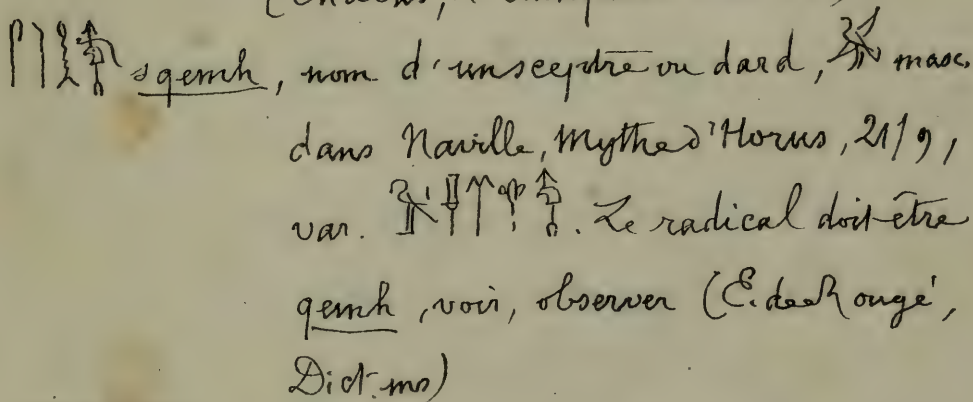 sqemh, nom d'un sceptre ou dard, masc.
dans Naville, Mythe d'Horus, 21/9,
var. . Le radical doit être
qemh, voir, observer (E. de Rougé,
Dict. ms)